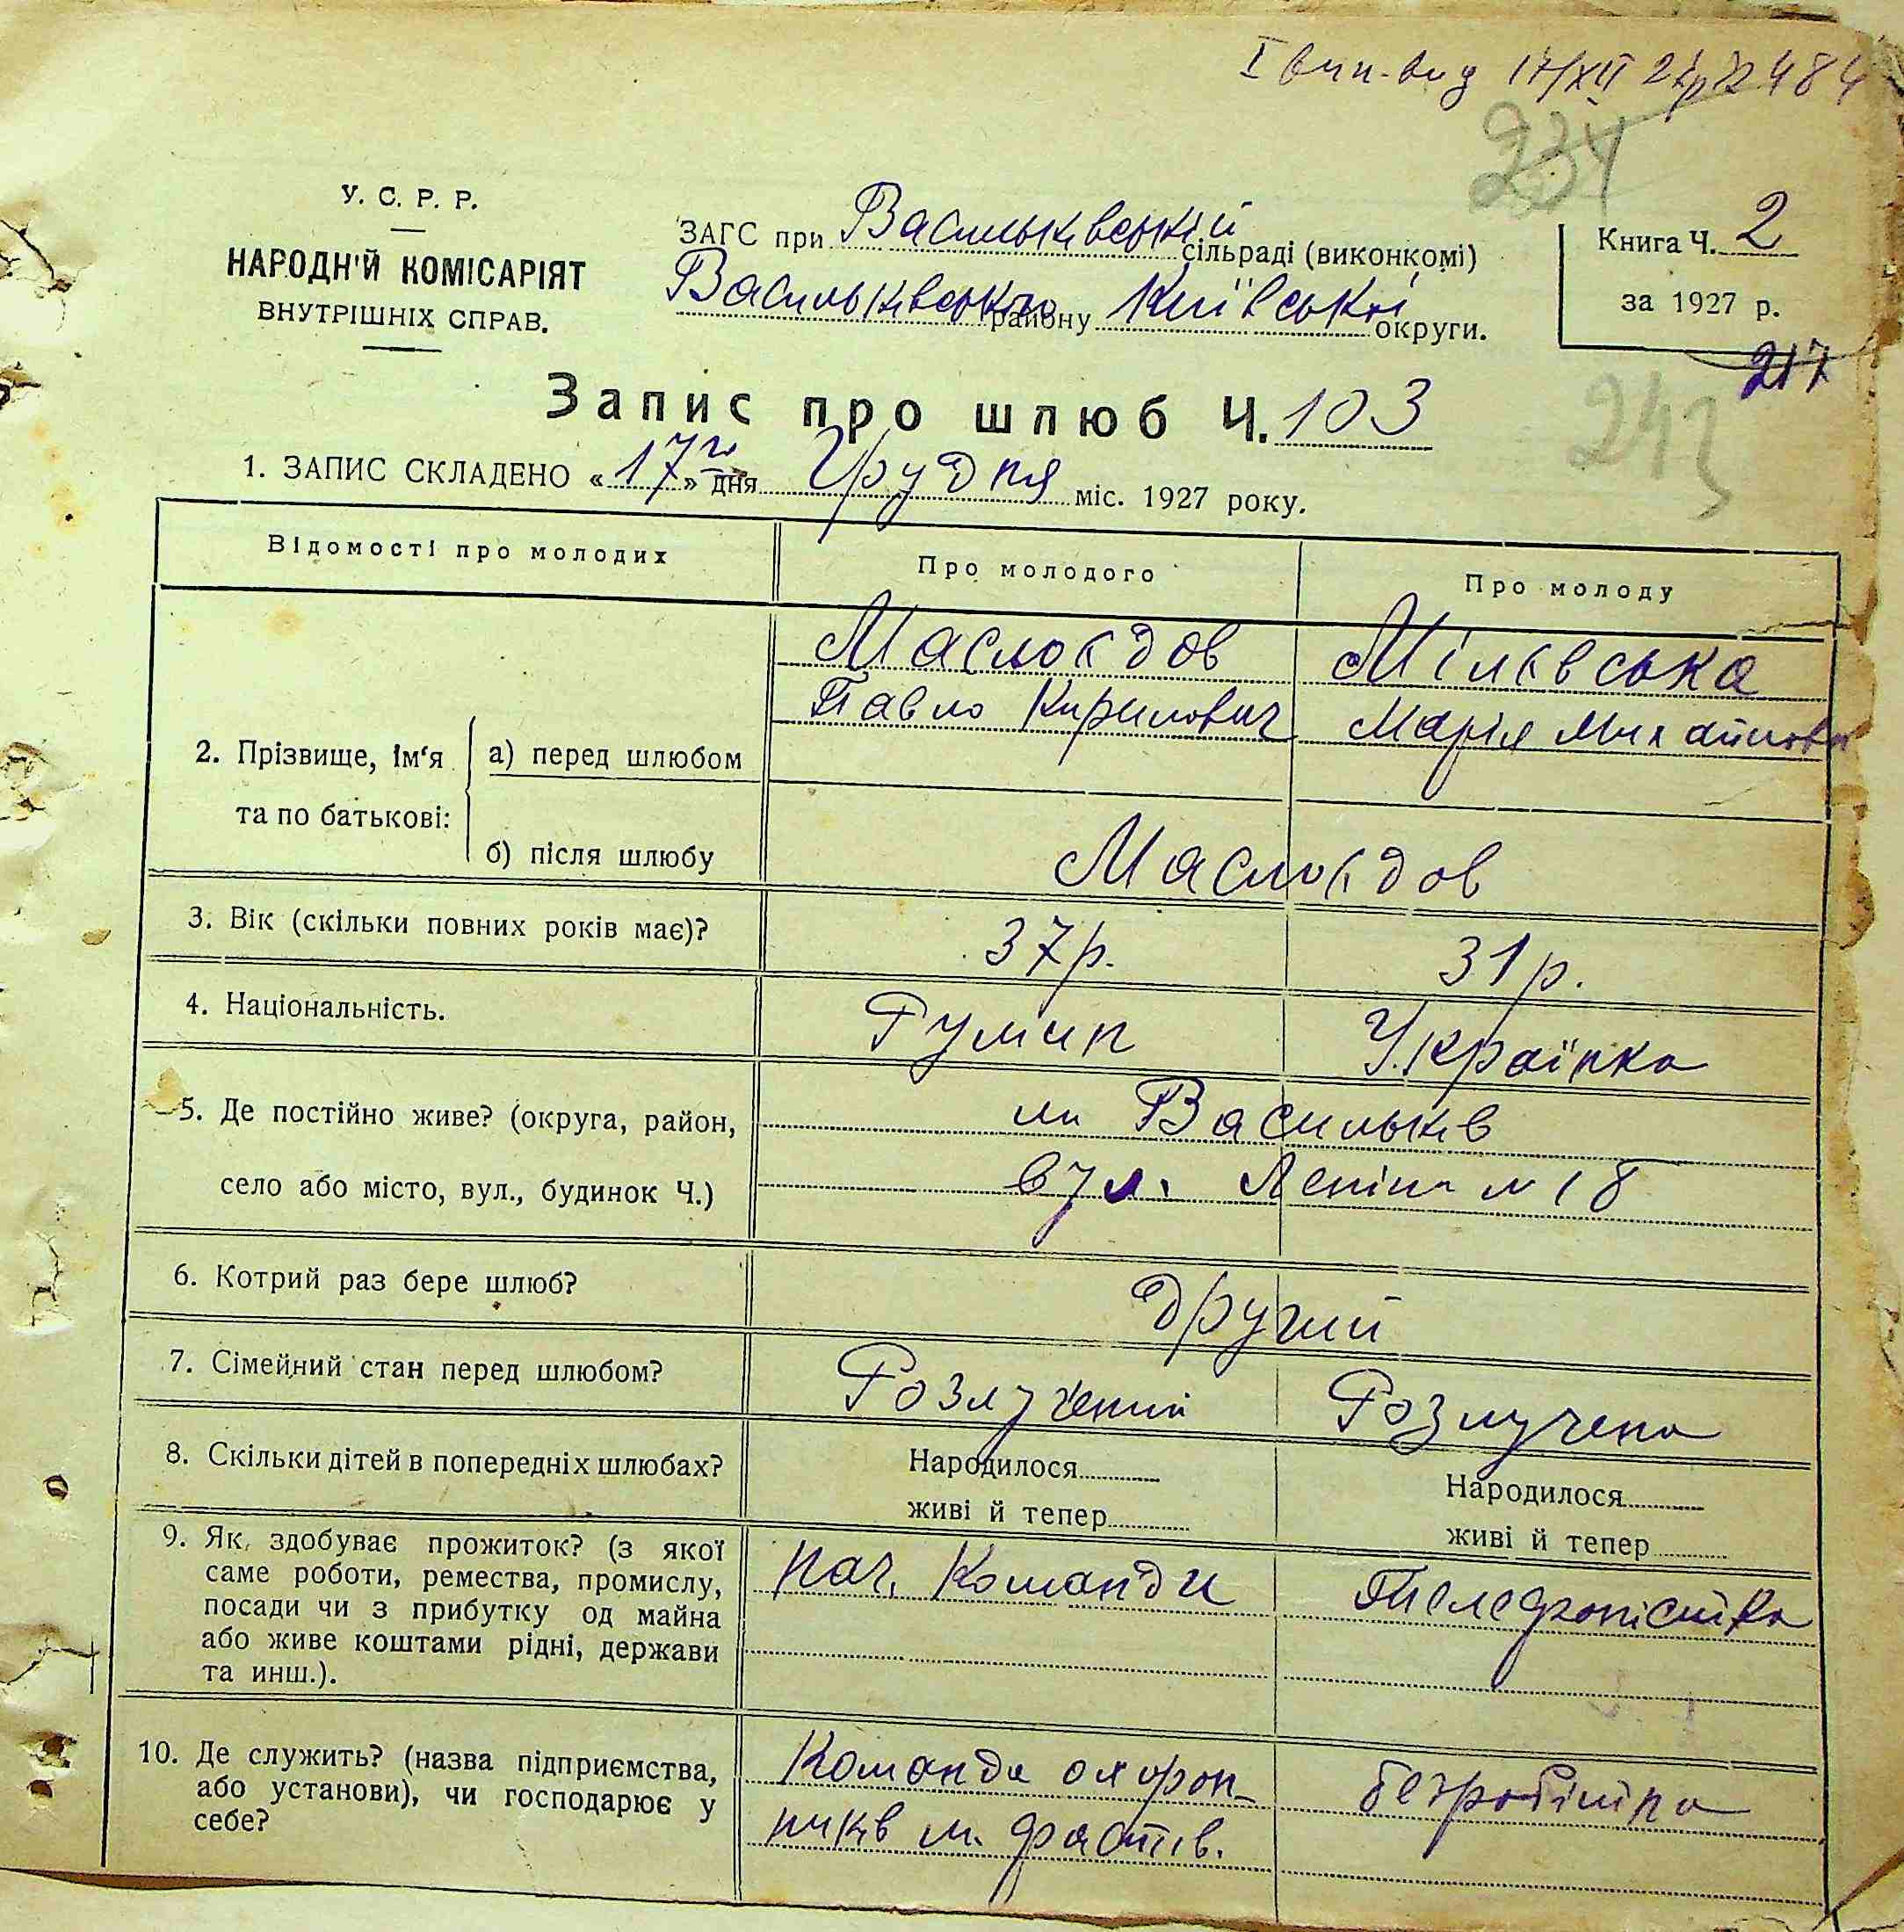 І вип-вид 17/XII 27р № 484
234
У. С. Р. Р.
НАРОДН'Й КОМІСАРІЯТ
ВНУТРІШНІХ СПРАВ.
ЗАГС при Васильківський сільраді (виконкомі)
Васильківського району Київської округи.
Книга Ч. 2
за 1927 р.
217
243
Запис про шлюб Ч. 103
1. ЗАПИС СКЛАДЕНО «17го» дня Грудня міс. 1927 року.
Відомості про молодих
Про молодого
Про молоду
2. Прізвище, ім‘я та по батькові:
а) перед шлюбом
Павло Кирилович
Марія Михайлова
б) після шлюбу
3. Вік (скільки повних років має)?
37р.
31р.
4. Національність.
Румин
Українка
5. Де постійно живе? (округа, район,
село або місто, вул., будинок Ч.)
м Васильків
вул. Леніна № 18
6. Котрий раз бере шлюб?
другий
7. Сімейний стан перед шлюбом?
Розлучений
Розлучена
8. Скільки дітей в попередніх шлюбах?
Народилося
живі й тепер
Народилося
живі й тепер
9. Як, здобуває прожиток? (з якої
саме роботи, ремества, промислу,
посади чи з прибутку од майна
або живе коштами рідні, держави
та инш.).
нач. Команди
Телефоністка
10. Де служить? (назва підприємства,
або установи), чи господарює у
себе?
Команда охорон-
ників м. Фастів.
безробітна